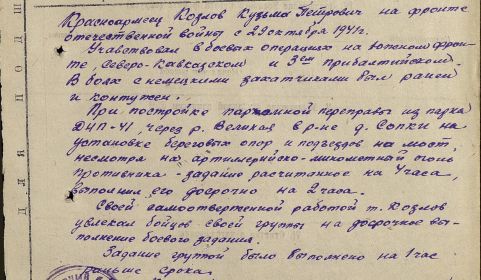 Красноармеец Козлов Кузьма Петрович на фронте
отечественной войны с 29 октября 1941г.
Учавствовал в боевых операциях на фрон-
те, Северо-Кавказском и 3ем прибалтийском.
В боях с немецкими захватчиками был ранен
и контужен.
При постройке паромной переправы из парка
ДМП-41 через р. Великая в р-не д. Сопки на
установке береговых опор и подъездов на мост,
несмотря на артилерийско-минометный огонь
противника - задание расчитанное на 4 часа,
выполнил его досрочно на 2 часа.
Своей самоотверженной работой т. Козлов
увлекал бойцов своей группы на досрочное вы-
полнение боевого задания.
Задание групой было выполнено на 1 час
раньше срока.